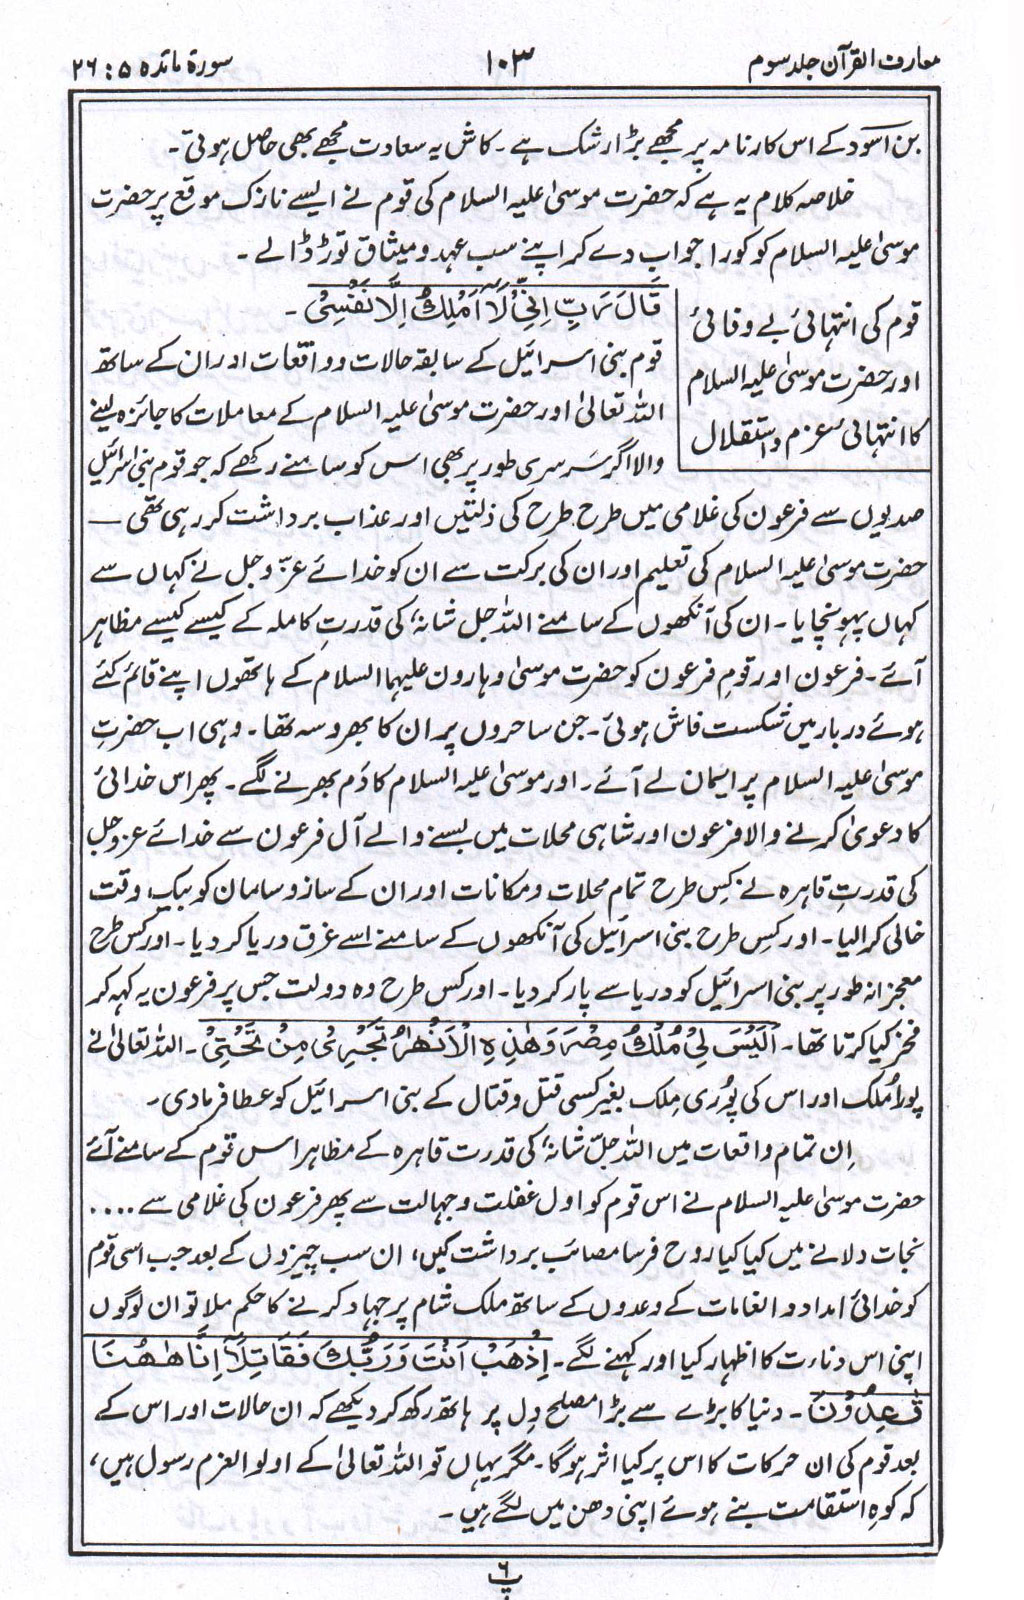 معارف القرآن جلد سوم
۱۰۳
سورۃ مائدہ ۵ : ۲۶
بن اسود کے اس کارنامہ پر مجھے بڑا رشک ہے۔ کاش یہ سعادت مجھے بھی حاصل ہوتی۔
خلاصہ کلام یہ ہے کہ حضرت موسیٰ علیہ السلام کی قوم نے ایسے نازک موقع پر حضرت
موسیٰ علیہ السلام کو کورا جواب دے کر اپنے سب عہد و میثاق توڑ ڈالے۔
قوم کی انتہائی بے وفائی
اور حضرت موسیٰ علیہ السلام
کا انتہائی عزم و استقلال
قَالَ رَبِّ اِنِّیْ لَآ اَمْلِكُ اِلَّا نَفْسِیْ۔
قوم بنی اسرائیل کے سابقہ حالات و واقعات اور ان کے ساتھ
اللہ تعالیٰ اور حضرت موسیٰ علیہ السلام کے معاملات کا جائزہ لینے
والا اگر سَرسری طور پر بھی اس کو سامنے رکھے کہ جو قوم بنی اسرائیل
صدیوں سے فرعون کی غلامی میں طرح طرح کی ذلتیں اور عذاب برداشت کر رہی تھی —
حضرت موسیٰ علیہ السلام کی تعلیم اور ان کی برکت سے ان کو خدائے عزّ وجل نے کہاں سے
کہاں پہونچایا۔ ان کی آنکھوں کے سامنے اللہ جل شانہ، کی قدرتِ کاملہ کے کیسے کیسے مظاہر
آئے۔ فرعون اور قومِ فرعون کو حضرت موسیٰ و ہارون علیہما السلام کے ہاتھوں اپنے قائم کئے
ہوئے دربار میں شکست فاش ہوئی۔ جن ساحروں پر ان کا بھروسہ تھا۔ وہی اب حضرتِ
موسیٰ علیہ السلام پر ایمان لے آئے۔ اور موسیٰ علیہ السلام کا دَم بھرنے لگے۔ پھر اس خدائی
کا دعویٰ کرنے والا فرعون اور شاہی محلات میں بسنے والے آل فرعون سے خدائے عز وجل
کی قدرتِ قاہرہ نے کِس طرح تمام محلات و مکانات اور ان کے ساز و سامان کو بیک وقت
خالی کرا لیا۔ اور کِس طرح بنی اسرائیل کی آنکھوں کے سامنے اسے غرق دریا کر دیا۔ اور کس طرح
معجزانہ طور پر بنی اسرائیل کو دریا سے پار کر دیا۔ اور کس طرح وہ دولت جس پر فرعون یہ کہہ کر
فخر کیا کرتا تھا۔ اَلَیْسَ لِیْ مُلْكُ مِصْرَ وَهٰذِهِ الْاَنْهٰرُ تَجْرِیْ مِنْ تَحْتِیْ۔ اللہ تعالیٰ نے
پورا مُلک اور اس کی پُوری مِلک بغیر کسی قتل و قتال کے بنی اسرائیل کو عطا فرما دی۔
اِن تمام واقعات میں اللہ جلّ شانہ، کی قدرت قاہرہ کے مظاہر اس قوم کے سامنے آئے
حضرت موسیٰ علیہ السلام نے اس قوم کو اول غفلت و جہالت سے پھر فرعون کی غلامی سے ....
نجات دلانے میں کیا کیا روح فرسا مصائب برداشت کیں، ان سب چیزوں کے بعد جب اسی قوم
کو خدائی امداد و انعامات کے وعدوں کے ساتھ ملک شام پر جہاد کرنے کا حکم ملا تو ان لوگوں
اپنی اس دناءت کا اظہار کیا اور کہنے لگے۔ اِذْهَبْ اَنْتَ وَرَبُّكَ فَقَاتِلَآ اِنَّا هٰهُنَا
قٰعِدُوْنَ۔ دنیا کا بڑے سے بڑا مصلح دِل پر ہاتھ رکھ کر دیکھے کہ ان حالات اور اس کے
بعد قوم کی ان حرکات کا اس پر کیا اثر ہو گا۔ مگر یہاں تو اللہ تعالیٰ کے اولو العزم رسول ہیں،
کہ کوہِ استقامت بنے ہوئے اپنی دھن میں لگے ہیں۔
پ ۶